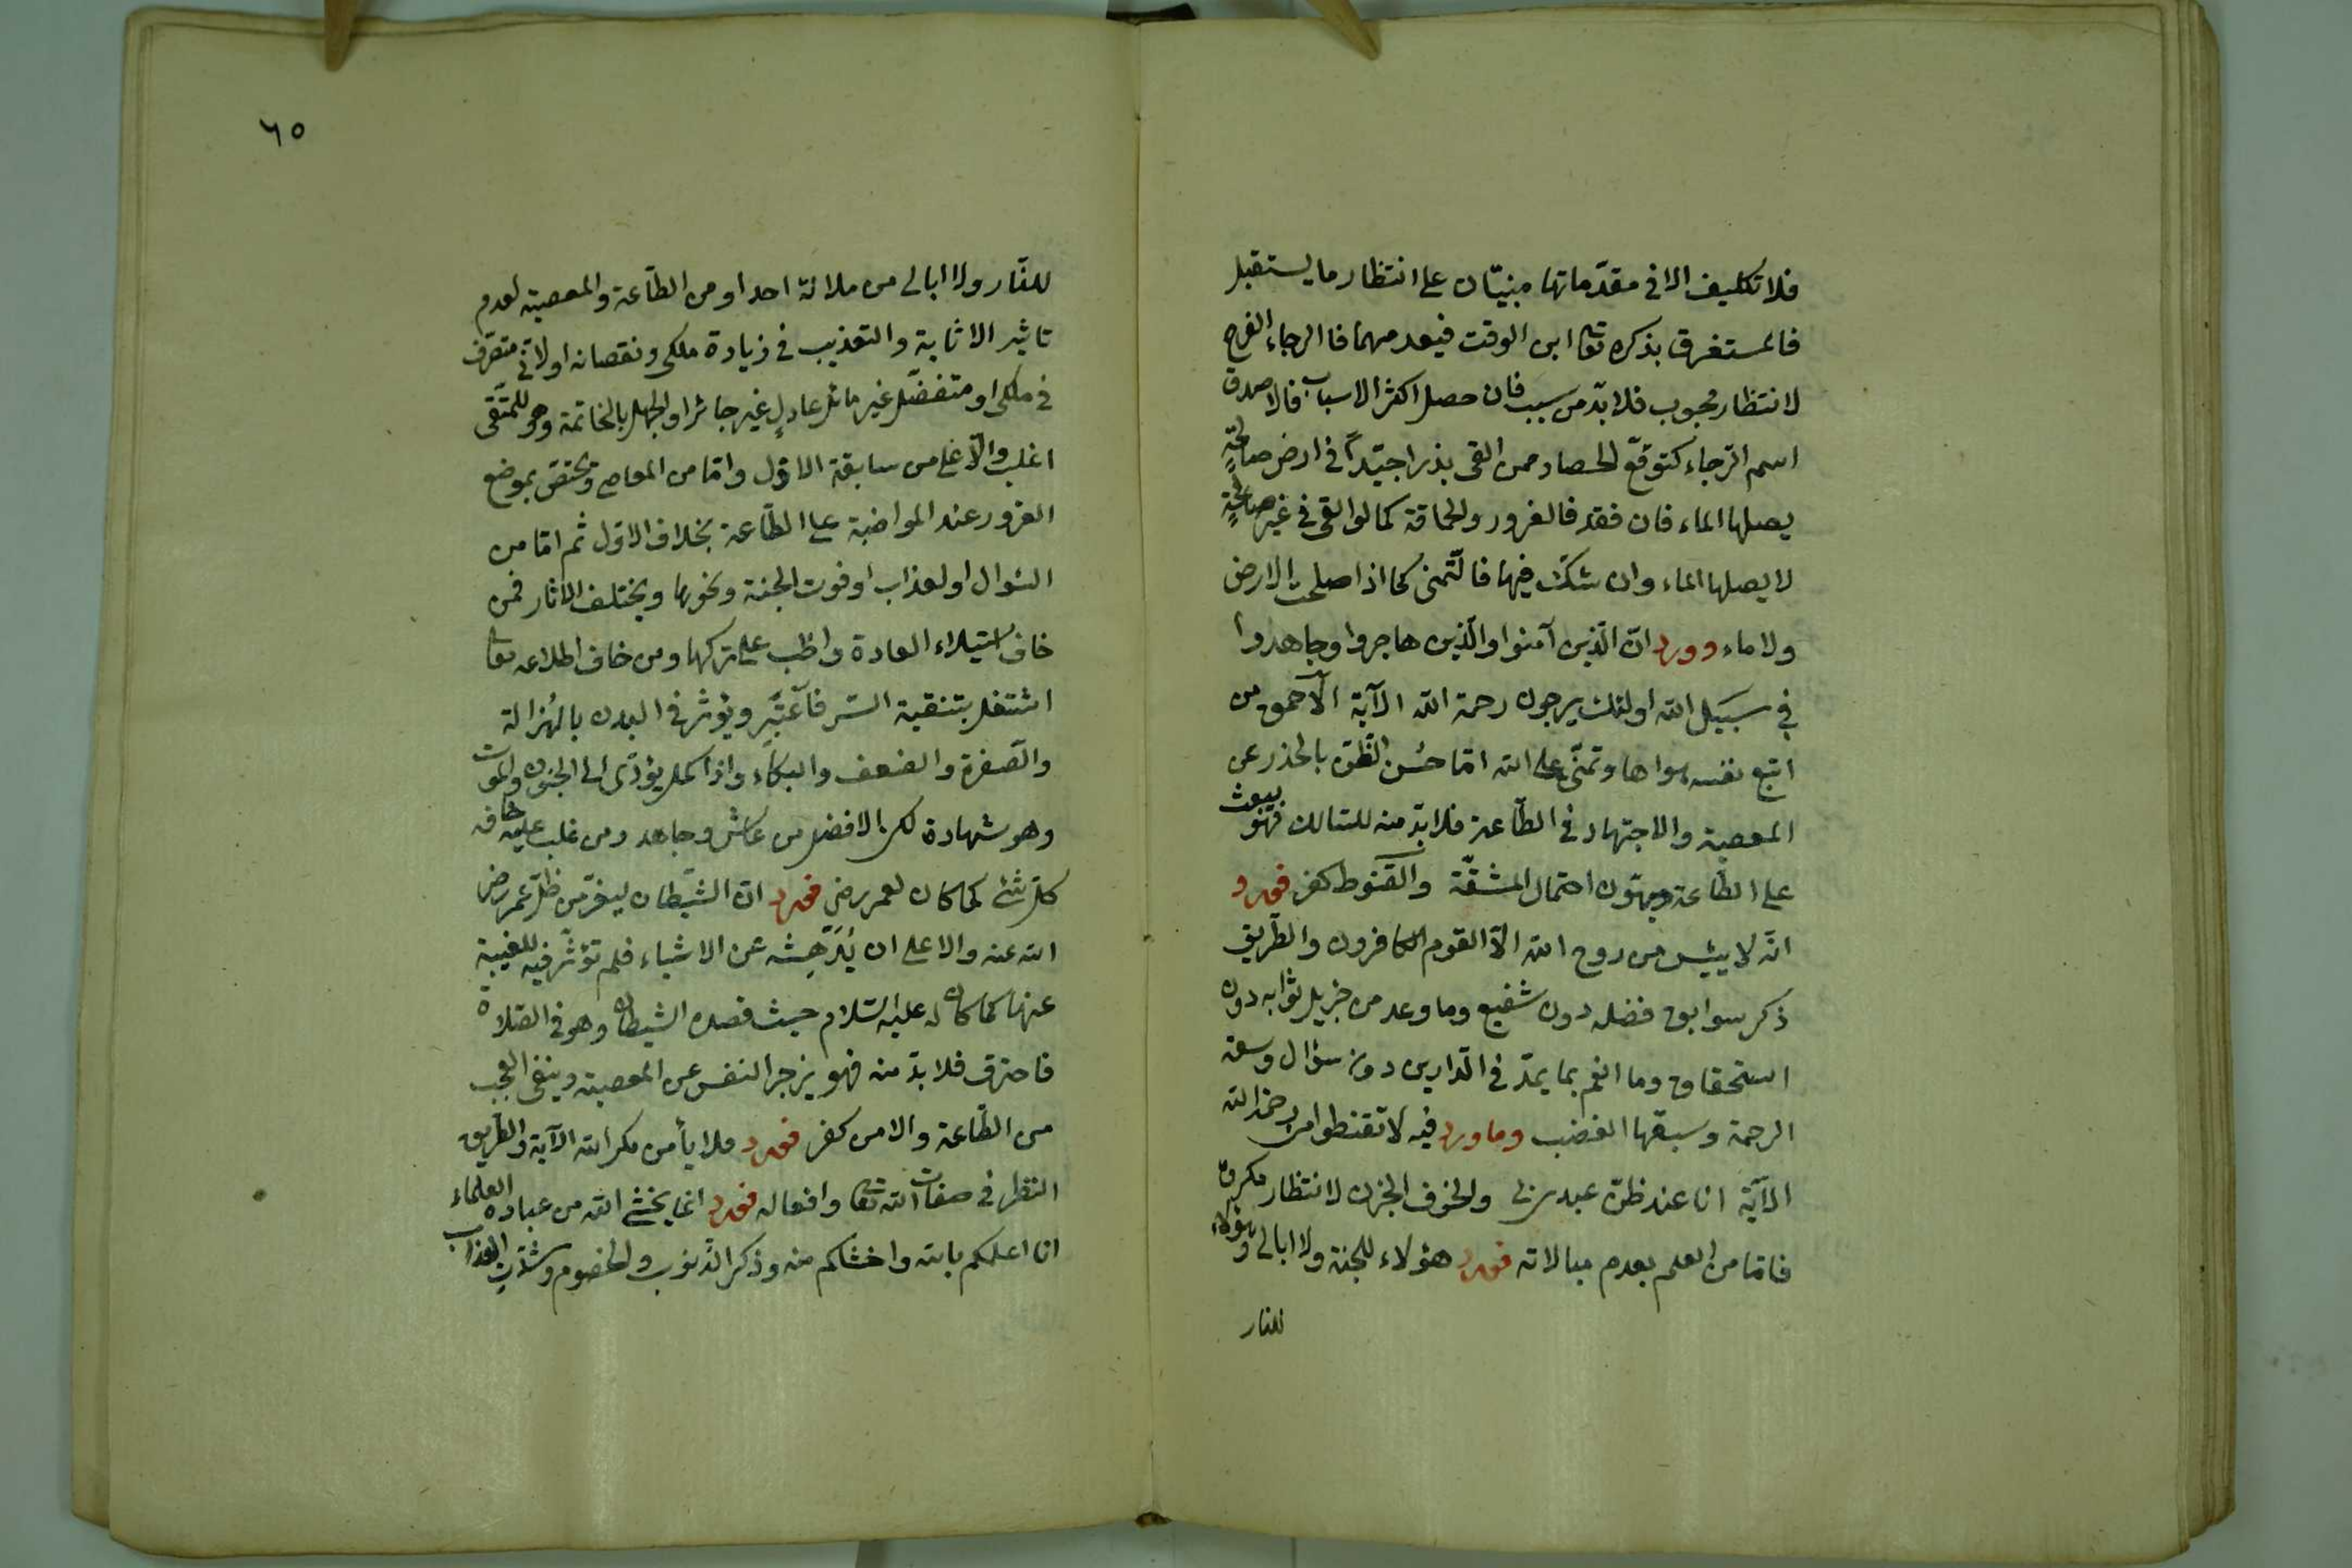 فلا تكليف الا فى مقدّماتها مبنيّان على انتظار ما يستقبل
فالمستغرق بذكره تعا ابن الوقت فيعدمهما فالرجاء الفرح
لانتظار محبوب فلا بدّ من سبب فان حصل اكثر الاسباب فالاصدق
اسم الرّجاء كتوقّع الحصاد ممن القى بذرا جيّدًا فى ارض صالحةٍ
يصلها الماء فان فقد فالغرور والحماقة كما لو القى فى غير صالحةٍ
لا يصلها الماء وان شكّ فيها فالتّمنى كما اذا صلحت الارض
ولا ماء وورد انّ الّذين آمنوا والّذين هاجروا وجاهدوا
فى سبيل الله اولئك يرجون رحمة الله الآية الاحمق من
اتبع نفسه هواها وتمنّى على الله امّا حُسن الظّنّ بالحذر عن
المعصية والاجتهاد فى الطّاعة فلا بدّ منه للسّالك فهو يبعث
على الطّاعة ويهوّن احتمال المشقّة والقنوط كفر فورد
انّه لا ييئس من روح الله الّا القوم الكافرون والطّريق
ذكر سوابق فضله دون شفيع وما وعد من جزيل ثوابه دون
استحقاق وما انعم بما يمدّ فى الدّارين دون سؤال وسعة
الرحمة وسبقها الغضب وما ورد فيه لا تقنطوا من رحمة الله
الآية انا عند ظنّ عبدى بى والخوف الحزن لانتظار مكروه
فامّا من العلم بعدم مبالاته فورد هؤلاء للجنة ولا ابالى وهؤلاء
للنار
٦٥
للنّار ولا ابالى من ملائة احدا ومن الطّاعة والمعصية لعدم
تاثير الاثابة والتعذيب فى زيادة ملكى ونقصانه او لانّى متصرّف
فى ملكى او متفضّل غير مائل عادلٍ غير جائر او الجهل بالخاتمة وهو للمتّقى
اغلب والّا على من سابقة الاوّل وامّا من المعاصى ويختصّ بموضع
الغرور عند المواضبة على الطّاعة بخلاف الاوّل ثم امّا من
السّوال او العذاب او فوت الجنة ونحوها ويختلف الاثار فمن
خاف استيلاء العادة واظب على تركها ومن خاف اطلاعه تعا
اشتغل بتنقية السّر فاعتبر ويؤثر فى البدن بالهُزالة
والصّفرة والضعف والبكاء واذا كمل يؤدّى الى الجنون والموت
وهو شهادة لكن الافضل من عاش وجاهد ومن غلب عليه خافه
كلّ شئ كما كان لعمر رضى فورد انّ الشّيطان ليفرّ من ظلّ عمر رضى
الله عنه والاعلى ان يُدهِشه عن الاشياء فلم تؤثّر فيه للغيبة
عنها كما كان له عليه السّلام حيث قصده الشيطان وهو فى الصّلاة
فاحترق فلا بدّ منه فهو يزجر النفس عن المعصية وينفى العجب
من الطّاعة والامن كفر فورد فلا يأمن مكر الله الآية والطّريق
النظر فى صفات الله تعا وافعاله فورد انما يخشى الله من عباده العلماء
انا اعلمكم بالله واخشاكم منه وذكر الذّنوب والخصوم وشدّة العذاب